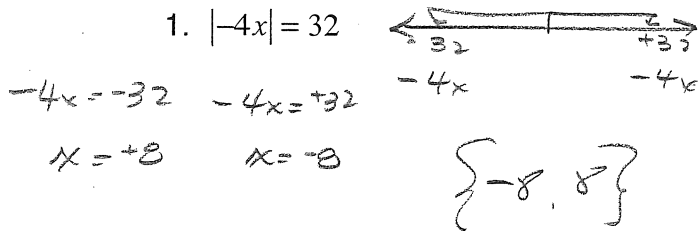 1. |−4x| = 32
-32 +32
-4x -4x
-4x = -32 -4x = +32
x = +8 x = -8
{-8, 8}